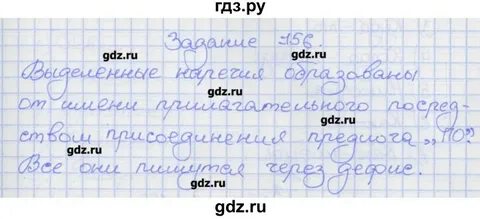 гдз.ру
Задание 156.
Выделенные наречия образованы
от имени прилагательного посред-
ством присоединения предлога „ПО".
Все они пишутся через дефис.
gdz.ru
gdz.ru
gdz.ru
gdz.ru
gdz.ru
gdz.ru
gdz.ru
gdz.ru